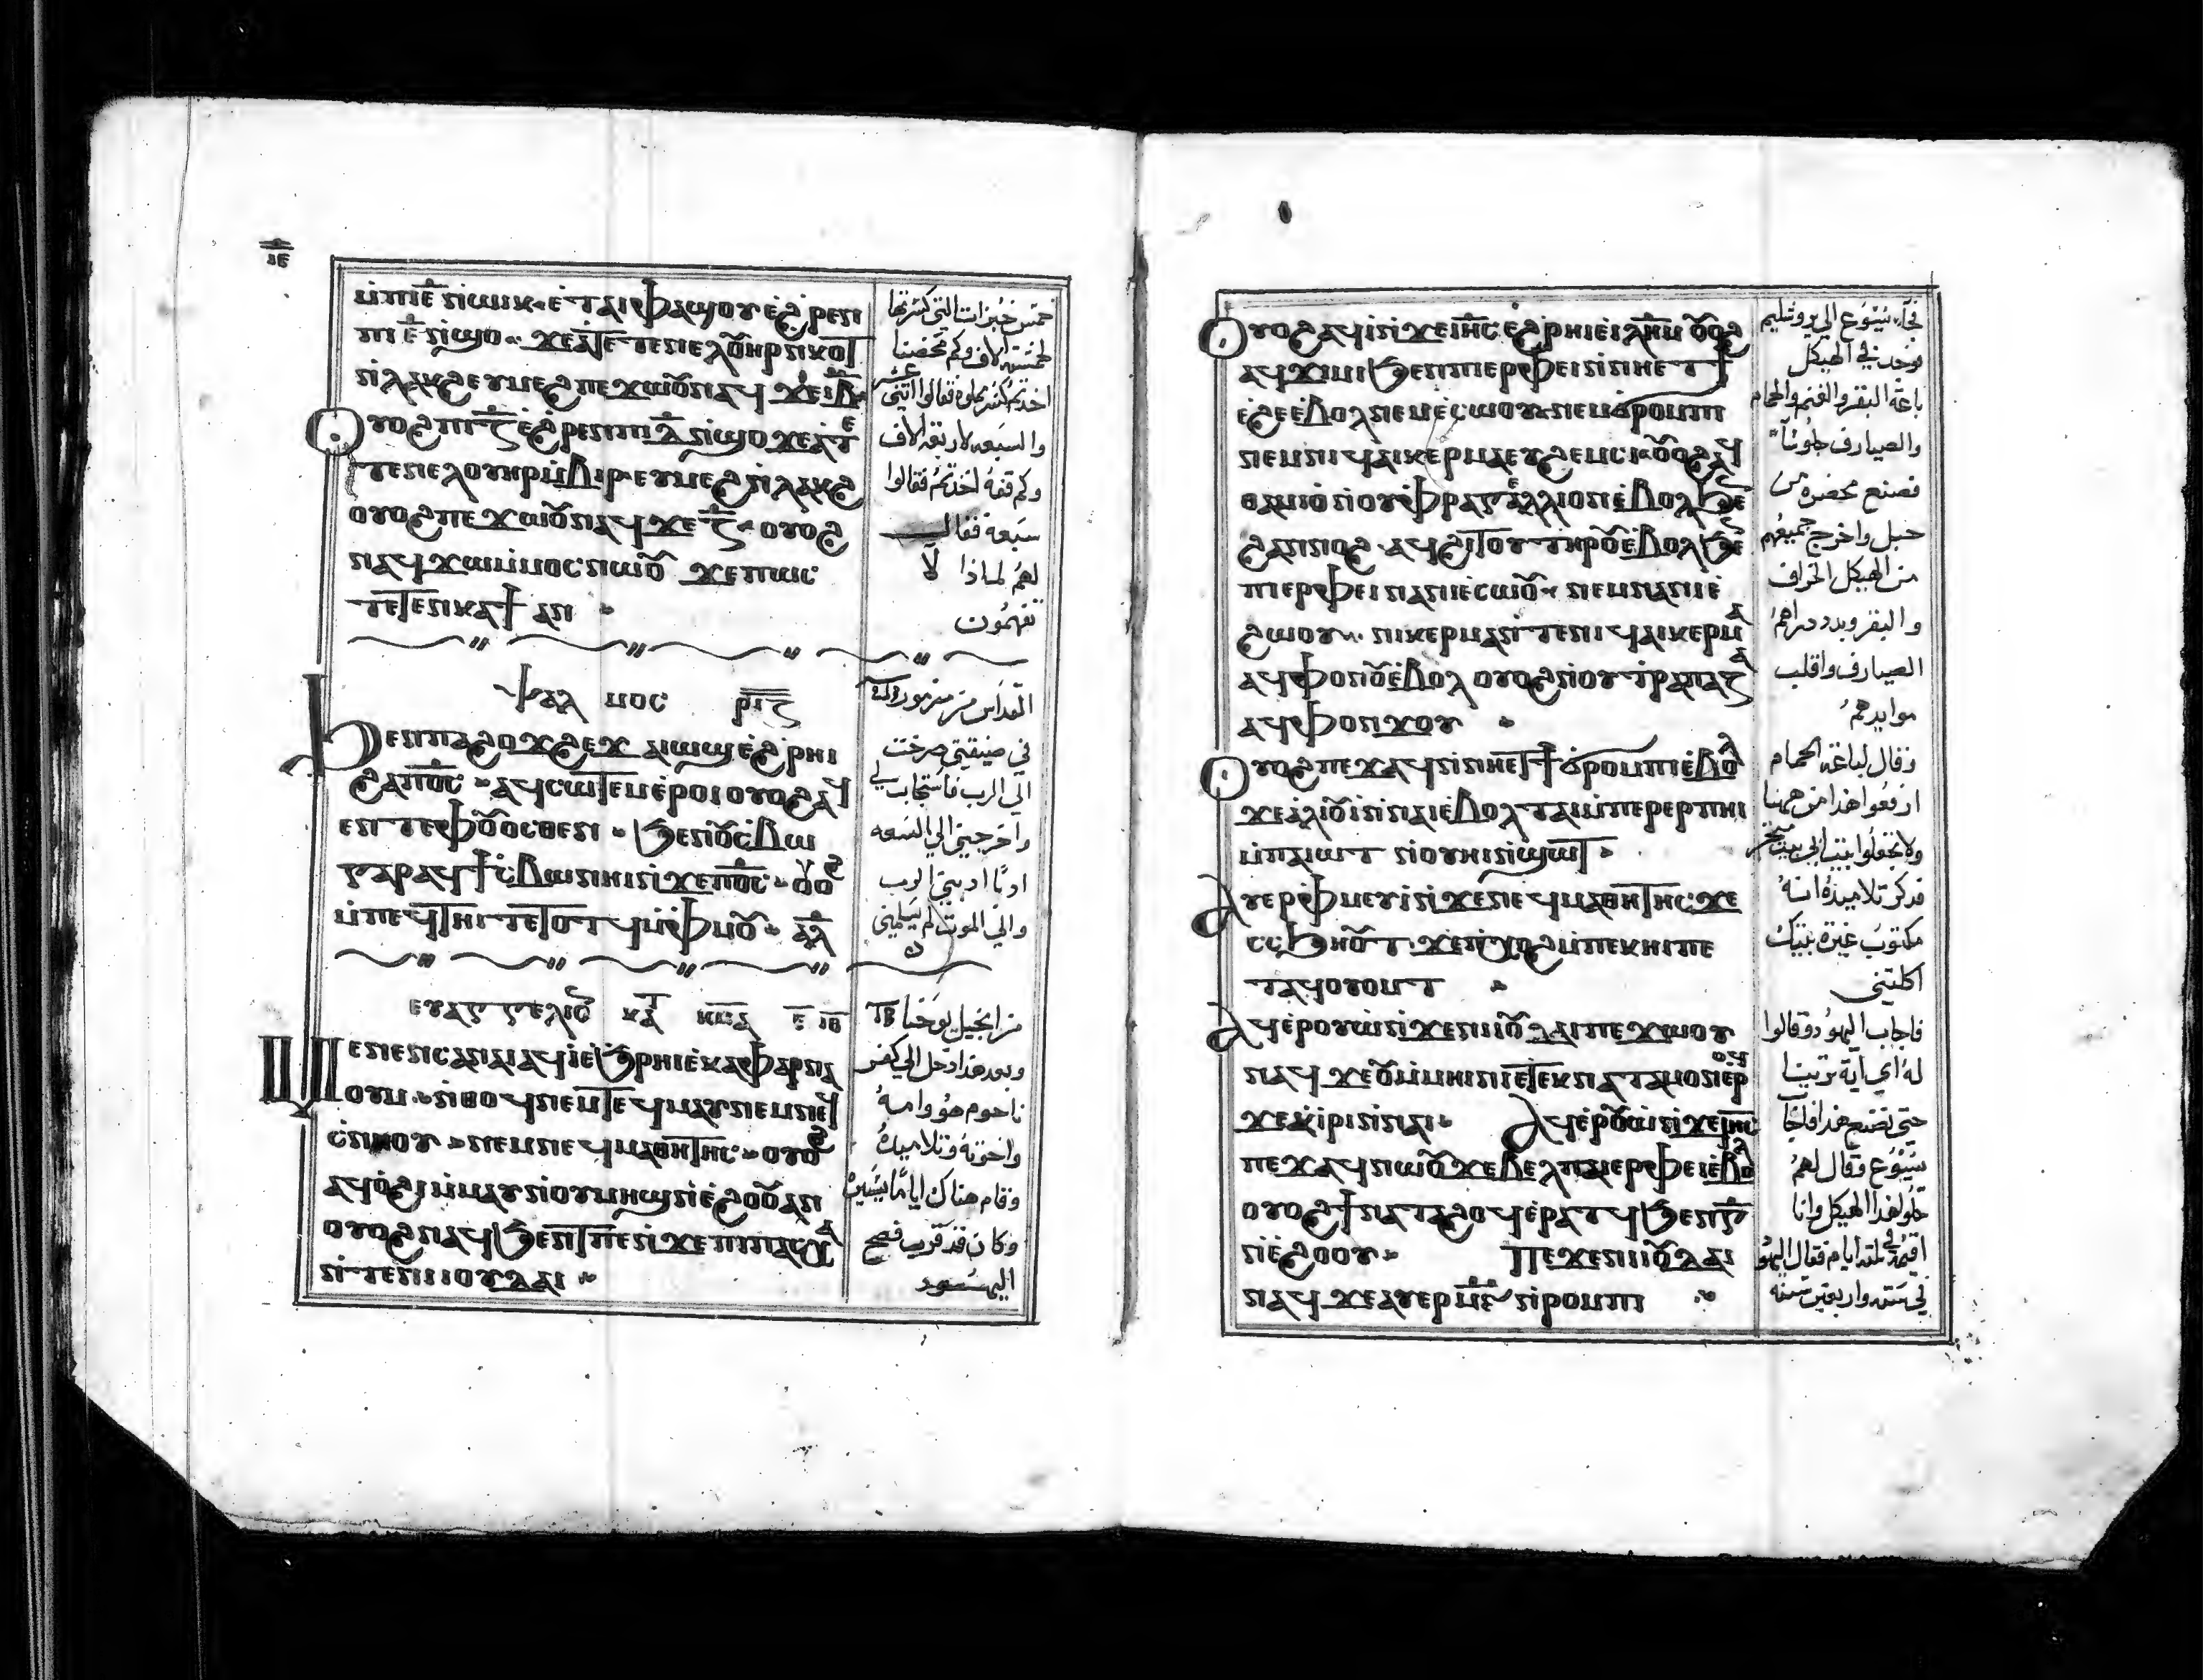 ⲓⲉ
ⲙ̀ⲡⲓⲉ̅ ⲛ̀ⲱⲓⲕ ⲉ̀ⲧⲁⲓⲫⲁϣⲟⲩ ⲉ̀ϩⲣⲉⲛ
ⲡⲓ ⲉ̅ ⲛ̀ϣⲟ
ⲟⲩⲟϩ ⲡⲓⲍ̅ ⲉ̀ϩⲣⲉⲛ ⲡⲓⲇ̅ ⲛ̀ϣⲟ ϫⲉ ⲁ̀ⲧⲉ
ⲧⲉⲛⲉⲗ ⲟⲩⲏⲣ ⲙ̀ⲃⲓⲣ ⲉⲩⲙⲉϩ ⲛ̀ⲗⲁⲕϩ
ⲟⲩⲟϩ ⲡⲉϫⲱⲟⲩ ⲛⲁϥ ϫⲉ ⲍ̅ ⲟⲩⲟϩ
ⲛⲁϥϫⲱ ⲙ̀ⲙⲟⲥ ⲛⲱⲟⲩ ϫⲉ ⲡⲱⲥ
ⲧⲉⲧⲉⲛⲕⲁϯ ⲁⲛ
ⲯⲁⲗⲙⲟⲥ ⲣⲓⲍ
ϧⲉⲛ ⲡⲁϩⲟϫϩⲉϫ ⲁⲓⲱϣ ⲉ̀ϩⲣⲏⲓ
ϩⲁ ⲡⲟ̅ⲥ̅ ⲁϥⲥⲱⲧⲉⲙ ⲉ̀ⲣⲟⲓ ⲟⲩⲟϩ ⲁϥ
ⲉⲛⲧ ⲉⲫⲟⲩⲟⲥⲑⲉⲛ ϧⲉⲛ ⲟⲩⲥ̀ⲃⲱ
ⲅⲁⲣ ⲁϥϯⲥ̀ⲃⲱ ⲛⲏⲓ ⲛ̀ϫⲉ ⲡⲟ̅ⲥ̅ ⲟⲩⲟϩ
ⲙ̀ⲡⲉϥⲧⲏⲓⲧ ⲉⲧⲟⲧϥ ⲙ̀ⲫⲙⲟⲩ ⲁ̅ⲗ̅
ⲉⲩⲁⲅⲅⲉⲗⲓⲟⲛ ⲕⲁⲧⲁ
ⲙⲉⲛⲉⲛⲥⲁ ⲛⲁⲓ ⲁϥⲓ̀ ⲉ̀ϧⲣⲏⲓ ⲉ̀ⲕⲁⲫⲁⲣⲛⲁ
ⲟⲩⲙ ⲛ̀ⲑⲟϥ ⲛⲉⲙ ⲧⲉϥⲙⲁⲩ ⲛⲉⲙ ⲛⲉϥ
ⲥ̀ⲛⲏⲟⲩ ⲛⲉⲙ ⲛⲉϥⲙⲁⲑⲏⲧⲏⲥ ⲟⲩⲟϩ
ⲁϥⲟ̀ϩⲓ ⲙ̀ⲙⲁⲩ ⲛ̀ⲟⲩⲙⲏϣ ⲛ̀ⲉ̀ϩⲟⲟⲩ ⲁⲛ
ⲟⲩⲟϩ ⲛⲁϥϧⲉⲛⲧ ⲡⲉ ⲛ̀ϫⲉ ⲡⲡⲁⲥⲭⲁ
ⲛ̀ⲧⲉ ⲛⲓⲓⲟⲩⲇⲁⲓ
خمس خبزات التي كسرتها
لخمسة الاف وكم
اخذتم
والسبعه لاربعه الاف
وكم قفة اخذتم فقالوا
سبعة فقال
لهم لماذا لا
تفهمون
في ضيقتي صرخت
الي الرب فاستجاب لي
واخرجني الي السعه
ادبا ادبني الرب
والي الموت لم يسلمني
من انجيل يوحنا
وبعد هذا دخل الي كفر
ناحوم هو وامه
واخوته وتلاميذه
وقام هناك اياما يسيرة
وكان قد قرب فصح
اليهود
ⲟⲩⲟϩ ⲁϥⲓ̀ ⲛ̀ϫⲉ ⲓⲏ̅ⲥ̅ ⲉ̀ϩⲣⲏⲓ ⲉ̀ⲓⲗ̅ⲏ̅ⲙ̅ ⲟⲩⲟϩ
ⲁϥϫⲓⲙⲓ ϧⲉⲛ ⲡⲓⲉⲣⲫⲉⲓ ⲛ̀ⲛⲏⲉⲧϯ
ⲉ̀ϩⲉ ⲉ̀ⲃⲟⲗ ⲛⲉⲙ ⲉ̀ⲥⲱⲟⲩ ⲛⲉⲙ ϭⲣⲟⲙⲡⲓ
ⲛⲉⲙ ⲛⲓϥⲁⲓⲕⲉⲣⲙⲁ ⲉⲩϩⲉⲙⲥⲓ ⲟⲩⲟϩ ⲁϥ
ⲑⲁⲙⲓⲟ̀ ⲛ̀ⲟⲩⲫⲣⲁⲅⲉⲗⲗⲓⲟⲛ ⲉ̀ⲃⲟⲗ ϧⲉⲛ
ϩⲁⲛⲛⲟϩ ⲁϥϩⲓⲧⲟⲩ ⲧⲏⲣⲟⲩ ⲉ̀ⲃⲟⲗ ϧⲉⲛ
ⲡⲓⲉⲣⲫⲉⲓ ⲛⲁⲛⲓⲉ̀ⲥⲱⲟⲩ ⲛⲉⲙ ⲛⲁⲛⲓⲉ̀
ϩⲱⲟⲩ ⲛⲓⲕⲉⲣⲙⲁ ⲛ̀ⲧⲉ ⲛⲓϥⲁⲓⲕⲉⲣⲙⲁ
ⲁϥⲫⲟⲛⲟⲩ ⲉ̀ⲃⲟⲗ ⲟⲩⲟϩ ⲛⲟⲩⲧⲣⲁⲡⲁⲍⲁ
ⲁϥⲫⲟⲛϫⲟⲩ
ⲟⲩⲟϩ ⲡⲉϫⲁϥ ⲛ̀ⲛⲏⲉⲧϯ ϭⲣⲟⲙⲡⲓ ⲉ̀ⲃⲟⲗ
ϫⲉ ⲁ̀ⲗⲓⲟⲩⲓ̀ ⲛ̀ⲛⲁⲓ ⲉ̀ⲃⲟⲗ ⲧⲁⲓ ⲙ̀ⲡⲉⲣⲉⲣ ⲡⲏⲓ
ⲙ̀ⲡⲁⲓⲱⲧ ⲛ̀ⲟⲩⲏⲓ ⲛ̀ϣⲱⲧ
ⲁⲩⲉⲣⲫⲙⲉⲩⲓ̀ ⲛ̀ϫⲉ ⲛⲉϥⲙⲁⲑⲏⲧⲏⲥ ϫⲉ
ⲥⲥϧⲏⲟⲩⲧ ϫⲉ ⲡ̀ⲭⲟϩ ⲙ̀ⲡⲉⲕⲏⲓ ⲡⲉ
ⲧⲁϥⲟⲩⲟⲙⲧ
ⲁⲩⲉ̀ⲣⲟⲩⲱ̀ ⲛ̀ϫⲉ ⲛⲓⲓⲟⲩⲇⲁⲓ ⲡⲉϫⲱⲟⲩ
ⲛⲁϥ ϫⲉ ⲟⲩ ⲙ̀ⲙⲏⲓⲛⲓ ⲉⲧⲉⲕⲛⲁⲧⲁⲙⲟⲛ ⲉ̀ⲣⲟϥ
ϫⲉ ⲭ̀ⲓⲣⲓ ⲛ̀ⲛⲁⲓ ⲁϥⲉ̀ⲣⲟⲩⲱ̀ ⲛ̀ϫⲉ ⲓⲏ̅ⲥ̅
ⲡⲉϫⲁϥ ⲛⲱⲟⲩ ϫⲉ ⲃⲉⲗ ⲡⲁⲓⲉⲣⲫⲉⲓ ⲉ̀ⲃⲟⲗ
ⲟⲩⲟϩ ϯⲛⲁⲧⲁϩⲟϥ ⲉ̀ⲣⲁⲧϥ ϧⲉⲛ ⲅ̅
ⲛ̀ⲉ̀ϩⲟⲟⲩ ⲡⲉϫⲉ ⲛⲓⲓⲟⲩⲇⲁⲓ
ⲛⲁϥ ϫⲉ ⲁⲩⲉⲣ ⲙ̅ⲋ̅ ⲛ̀ⲣⲟⲙⲡⲓ
فجاء يسوع الي يروشليم
فوجد في الهيكل
باعة البقر والغنم والحمام
والصيارف جلوسا
فصنع محضره من
حبل واخرج جميعهم
من الهيكل الخراف
والبقر وبدد دراهم
الصيارف واقلب
موايدهم
وقال لباعة الحمام
ارفعوا هذا من ههنا
ولا تجعلوا بيت ابي بيت متجر
فذكر تلاميذه انه
مكتوب غيرة بيتك
اكلتني
فاجاب اليهود وقالوا
له اي اية ترينا
حتي تصنع هذا فاجاب
يسوع وقال لهم
حلوا هذا الهيكل وانا
اقيمه في ثلثة ايام فقال اليهود
في ستة واربعين سنة